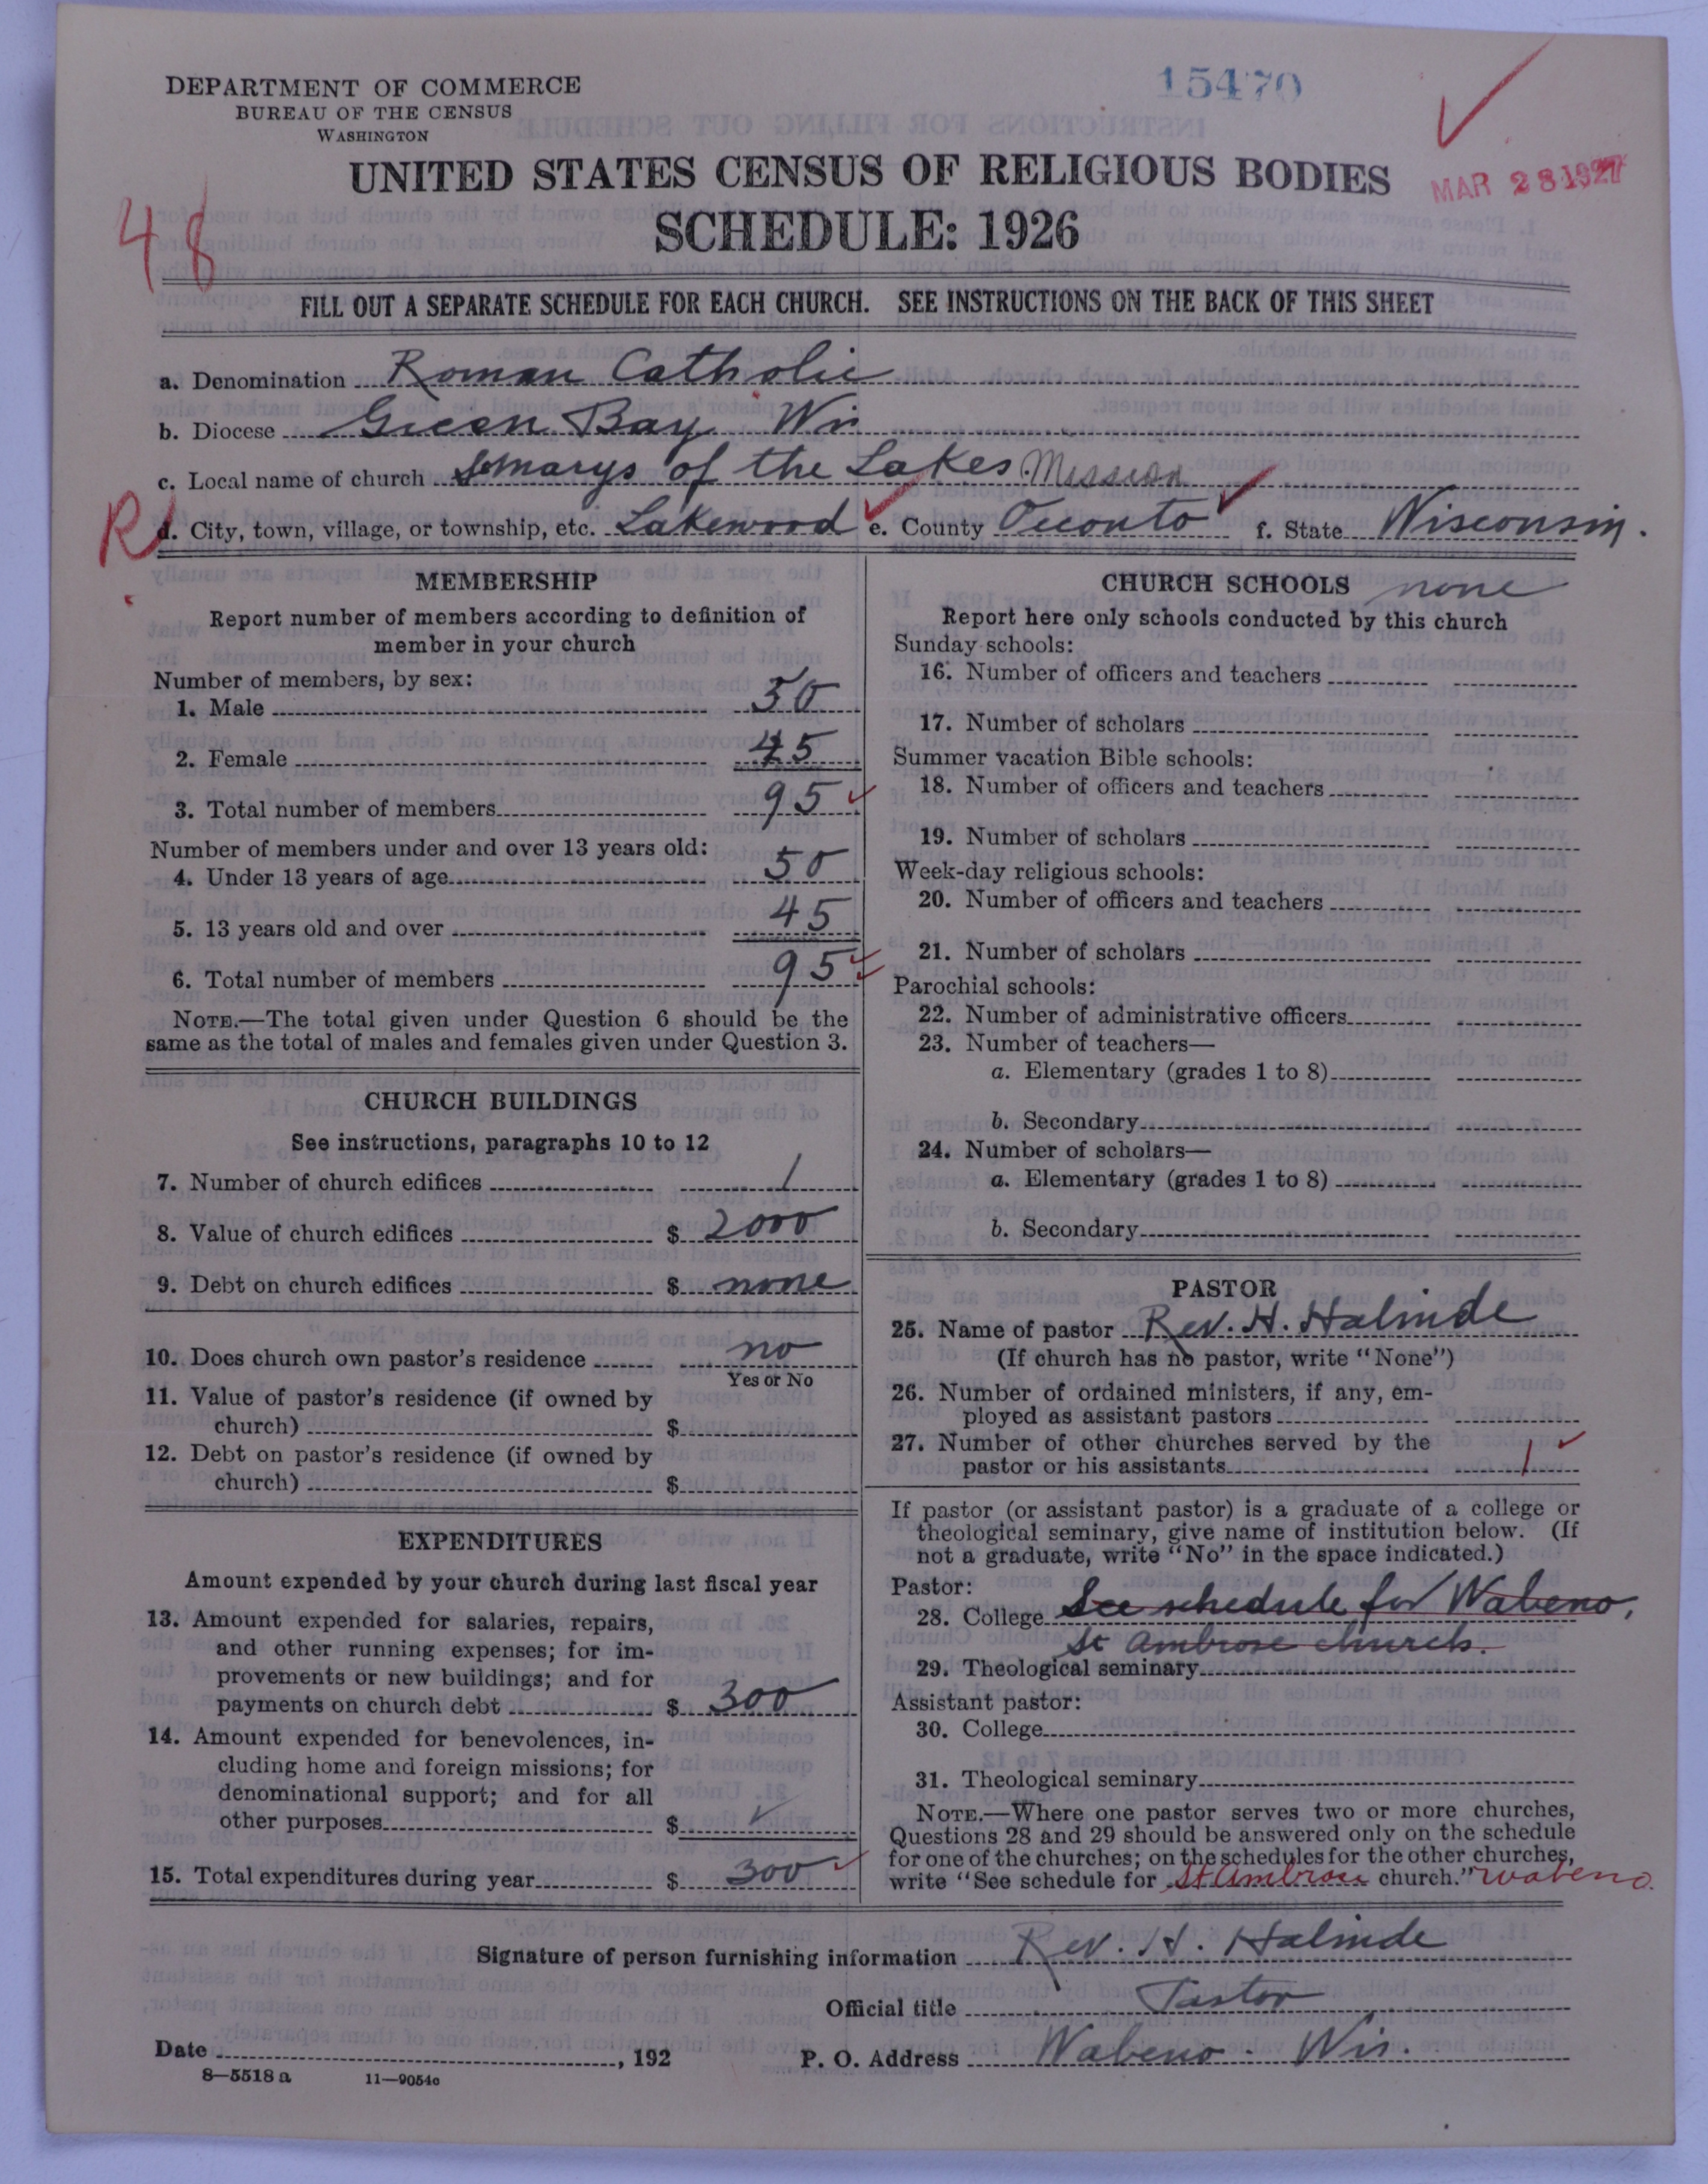 15470
DEPARTMENT OF COMMERCE
BUREAU OF THE CENSUS
WASHINGTON
UNITED STATES CENSUS OF RELIGIOUS BODIES
MAR 28 1927
48
SCHEDULE: 1926
FILL OUT A SEPARATE SCHEDULE FOR EACH CHURCH. SEE INSTRUCTIONS ON THE BACK OF THIS SHEET
a. Denomination Roman Catholic
b. Diocese Green Bay Wis
c. Local name of church St Marys of the Lakes. Mission
R
d. City, town, village, or township, etc. Lakewood e. County Oconto f. State Wisconsin.
MEMBERSHIP
Report number of members according to definition of
member in your church
Number of members, by sex:
1. Male 50
2. Female 45
3. Total number of members 95
Number of members under and over 13 years old:
4. Under 13 years of age 50
5. 13 years old and over 45
6. Total number of members 95
NOTE.—The total given under Question 6 should be the
same as the total of males and females given under Question 3.
CHURCH BUILDINGS
See instructions, paragraphs 10 to 12
7. Number of church edifices 1
8. Value of church edifices $ 2000
9. Debt on church edifices $ none
10. Does church own pastor's residence no
Yes or No
11. Value of pastor's residence (if owned by
church) $
12. Debt on pastor's residence (if owned by
church) $
EXPENDITURES
Amount expended by your church during last fiscal year
13. Amount expended for salaries, repairs,
and other running expenses; for im-
provements or new buildings; and for
payments on church debt $ 300
14. Amount expended for benevolences, in-
cluding home and foreign missions; for
denominational support; and for all
other purposes $
15. Total expenditures during year $ 300
CHURCH SCHOOLS none
Report here only schools conducted by this church
Sunday schools:
16. Number of officers and teachers
17. Number of scholars
Summer vacation Bible schools:
18. Number of officers and teachers
19. Number of scholars
Week-day religious schools:
20. Number of officers and teachers
21. Number of scholars
Parochial schools:
22. Number of administrative officers
23. Number of teachers—
a. Elementary (grades 1 to 8)
b. Secondary
24. Number of scholars—
a. Elementary (grades 1 to 8)
b. Secondary
PASTOR
25. Name of pastor Rev. H. Halinde
(If church has no pastor, write "None")
26. Number of ordained ministers, if any, em-
ployed as assistant pastors
27. Number of other churches served by the
pastor or his assistants 1
If pastor (or assistant pastor) is a graduate of a college or
theological seminary, give name of institution below. (If
not a graduate, write "No" in the space indicated.)
Pastor:
28. College See schedule for Wabeno,
St Ambrose church.
29. Theological seminary
Assistant pastor:
30. College
31. Theological seminary
NOTE.—Where one pastor serves two or more churches,
Questions 28 and 29 should be answered only on the schedule
for one of the churches; on the schedules for the other churches,
write "See schedule for St Ambrose church." Wabeno.
Signature of person furnishing information Rev. H. Halinde
Official title Pastor
Date , 192 P. O. Address Wabeno. Wis.
8—5518 a 11—9054c